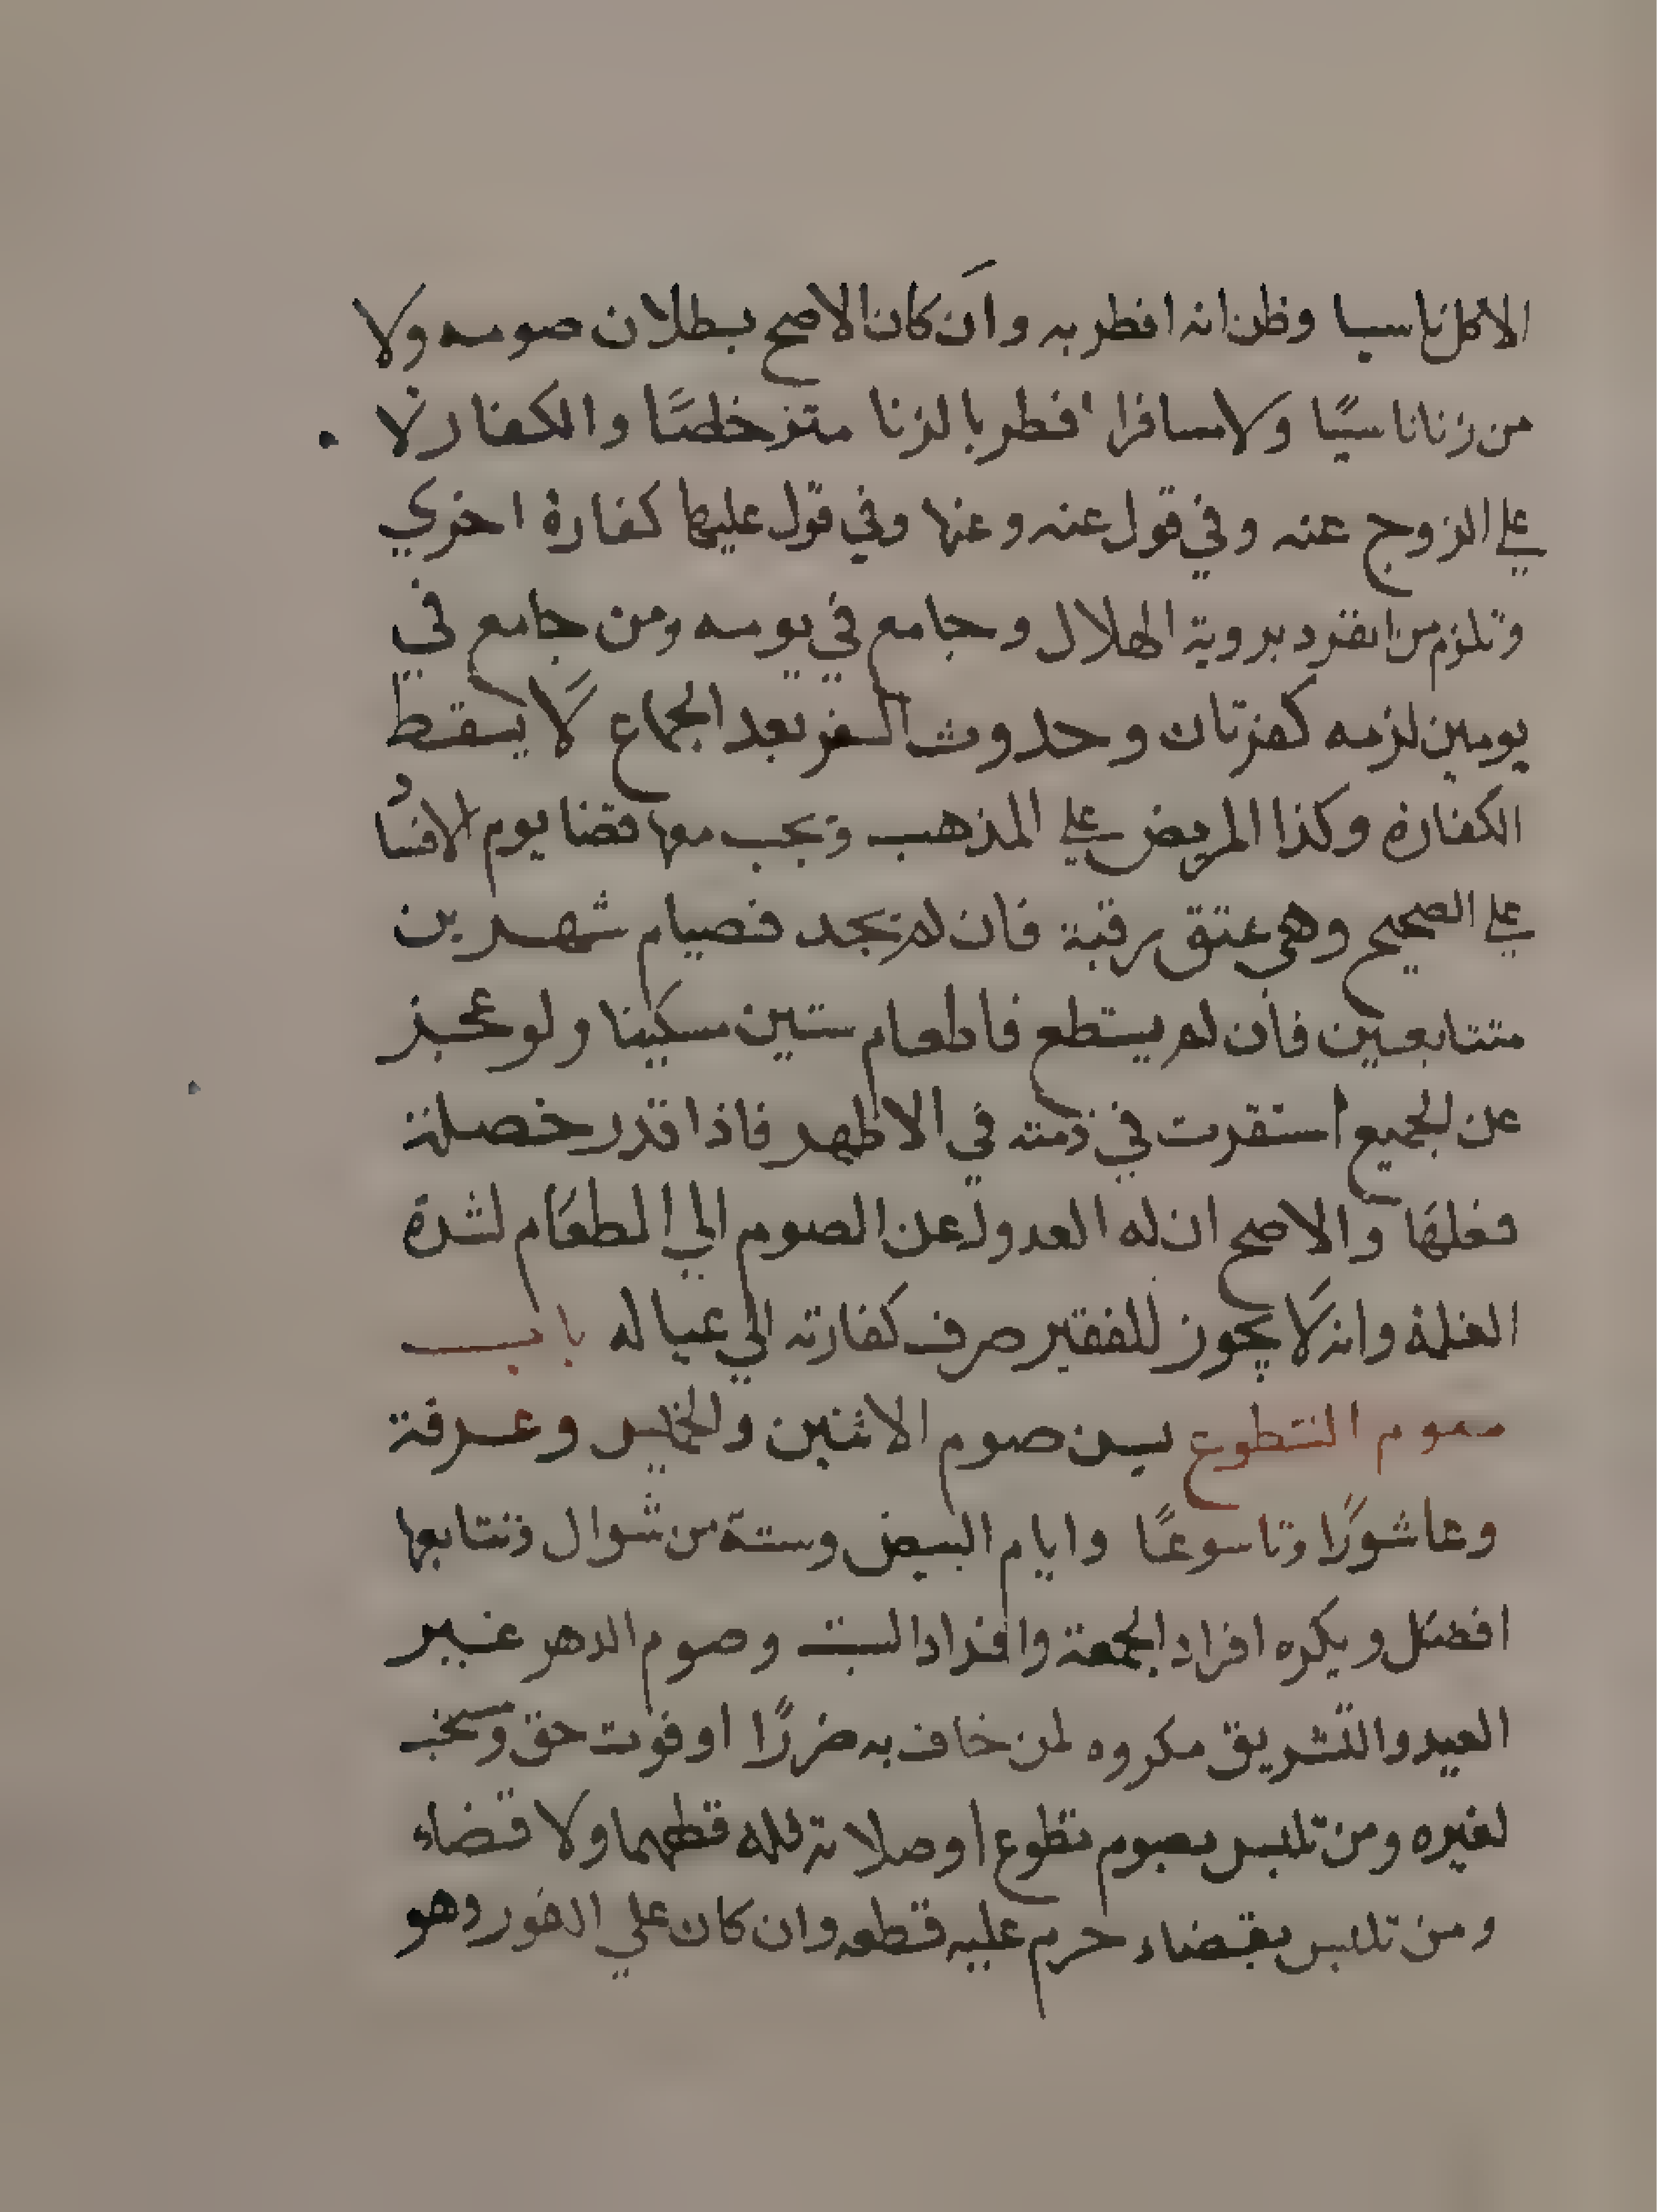 الاكل ناسيا وظن انه افطر به وان كان الاصح بطلان صومه ولا
من زنا ناسيًا ولا مسافرا افطر بالزنا مترخصًا والكفارة لا
على الزوج عنه وفي قول عنه وعنها وفي قول عليهما كفارة اخري
وتلزم من انفرد بروية الهلال وجامع في يومه ومن جامع في
يومين لزمه كفرتان وحدوث السفر بعد الجماع لا يسقط
الكفارة وكذا المريض علي المذهب وتجب معها قضا يوم الافساد
علي الصحيح وهي عتق رقبة فان لم تجد فصيام شهرين
متتابعين فان لم يستطع فاطعام ستين مسكينا ولو عجز
عن الجميع استقرت في ذمته في الاظهر فاذا قدر خصلة
فعلها والاصح ان له العدول عن الصوم الي الطعام لشدة
الغلمة وانه لا يجوز للفقير صرف كفارته الي عياله باب
صوم التطوع يسن صوم الاثنين والخميس وعرفة
وعاشورًا وتاسوعًا وايام البيض وستة من شوال وتتابعها
افضل ويكره افراد الجمعة وافراد السبت وصوم الدهر غير
العيد والتشريق مكروه لمن خاف به ضررًا او فوت حق ومستحب
لغيره ومن تلبس بصوم تطوع او صلاته فله قطهما ولا قضاء
ومن تلبس بقضاء حرم عليه قطعه وان كان علي الفور وهو